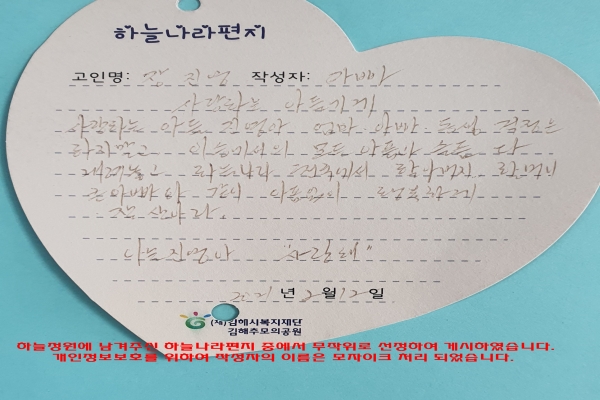 하늘나라편지
고인명: 장 진영 작성자: 아빠
사랑하는 아들에게
사랑하는 아들 진영아 엄마 아빠 걱정은
하지말고 이승에서의 모든 아픔과 슬픔 다
하늘나라 할머니
큰아빠와 같이 아픔없이 행복하게
잘 살아라.
아들 진영아 "사랑해"
2021년 2월 12일
(재)김해시복지재단
김해추모의공원
하늘정원에 남겨주신 하늘나라편지 중에서 무작위로 선정하여 게시하였습니다.
개인정보보호를 위하여 작성자의 이름은 모자이크 처리 되었습니다.